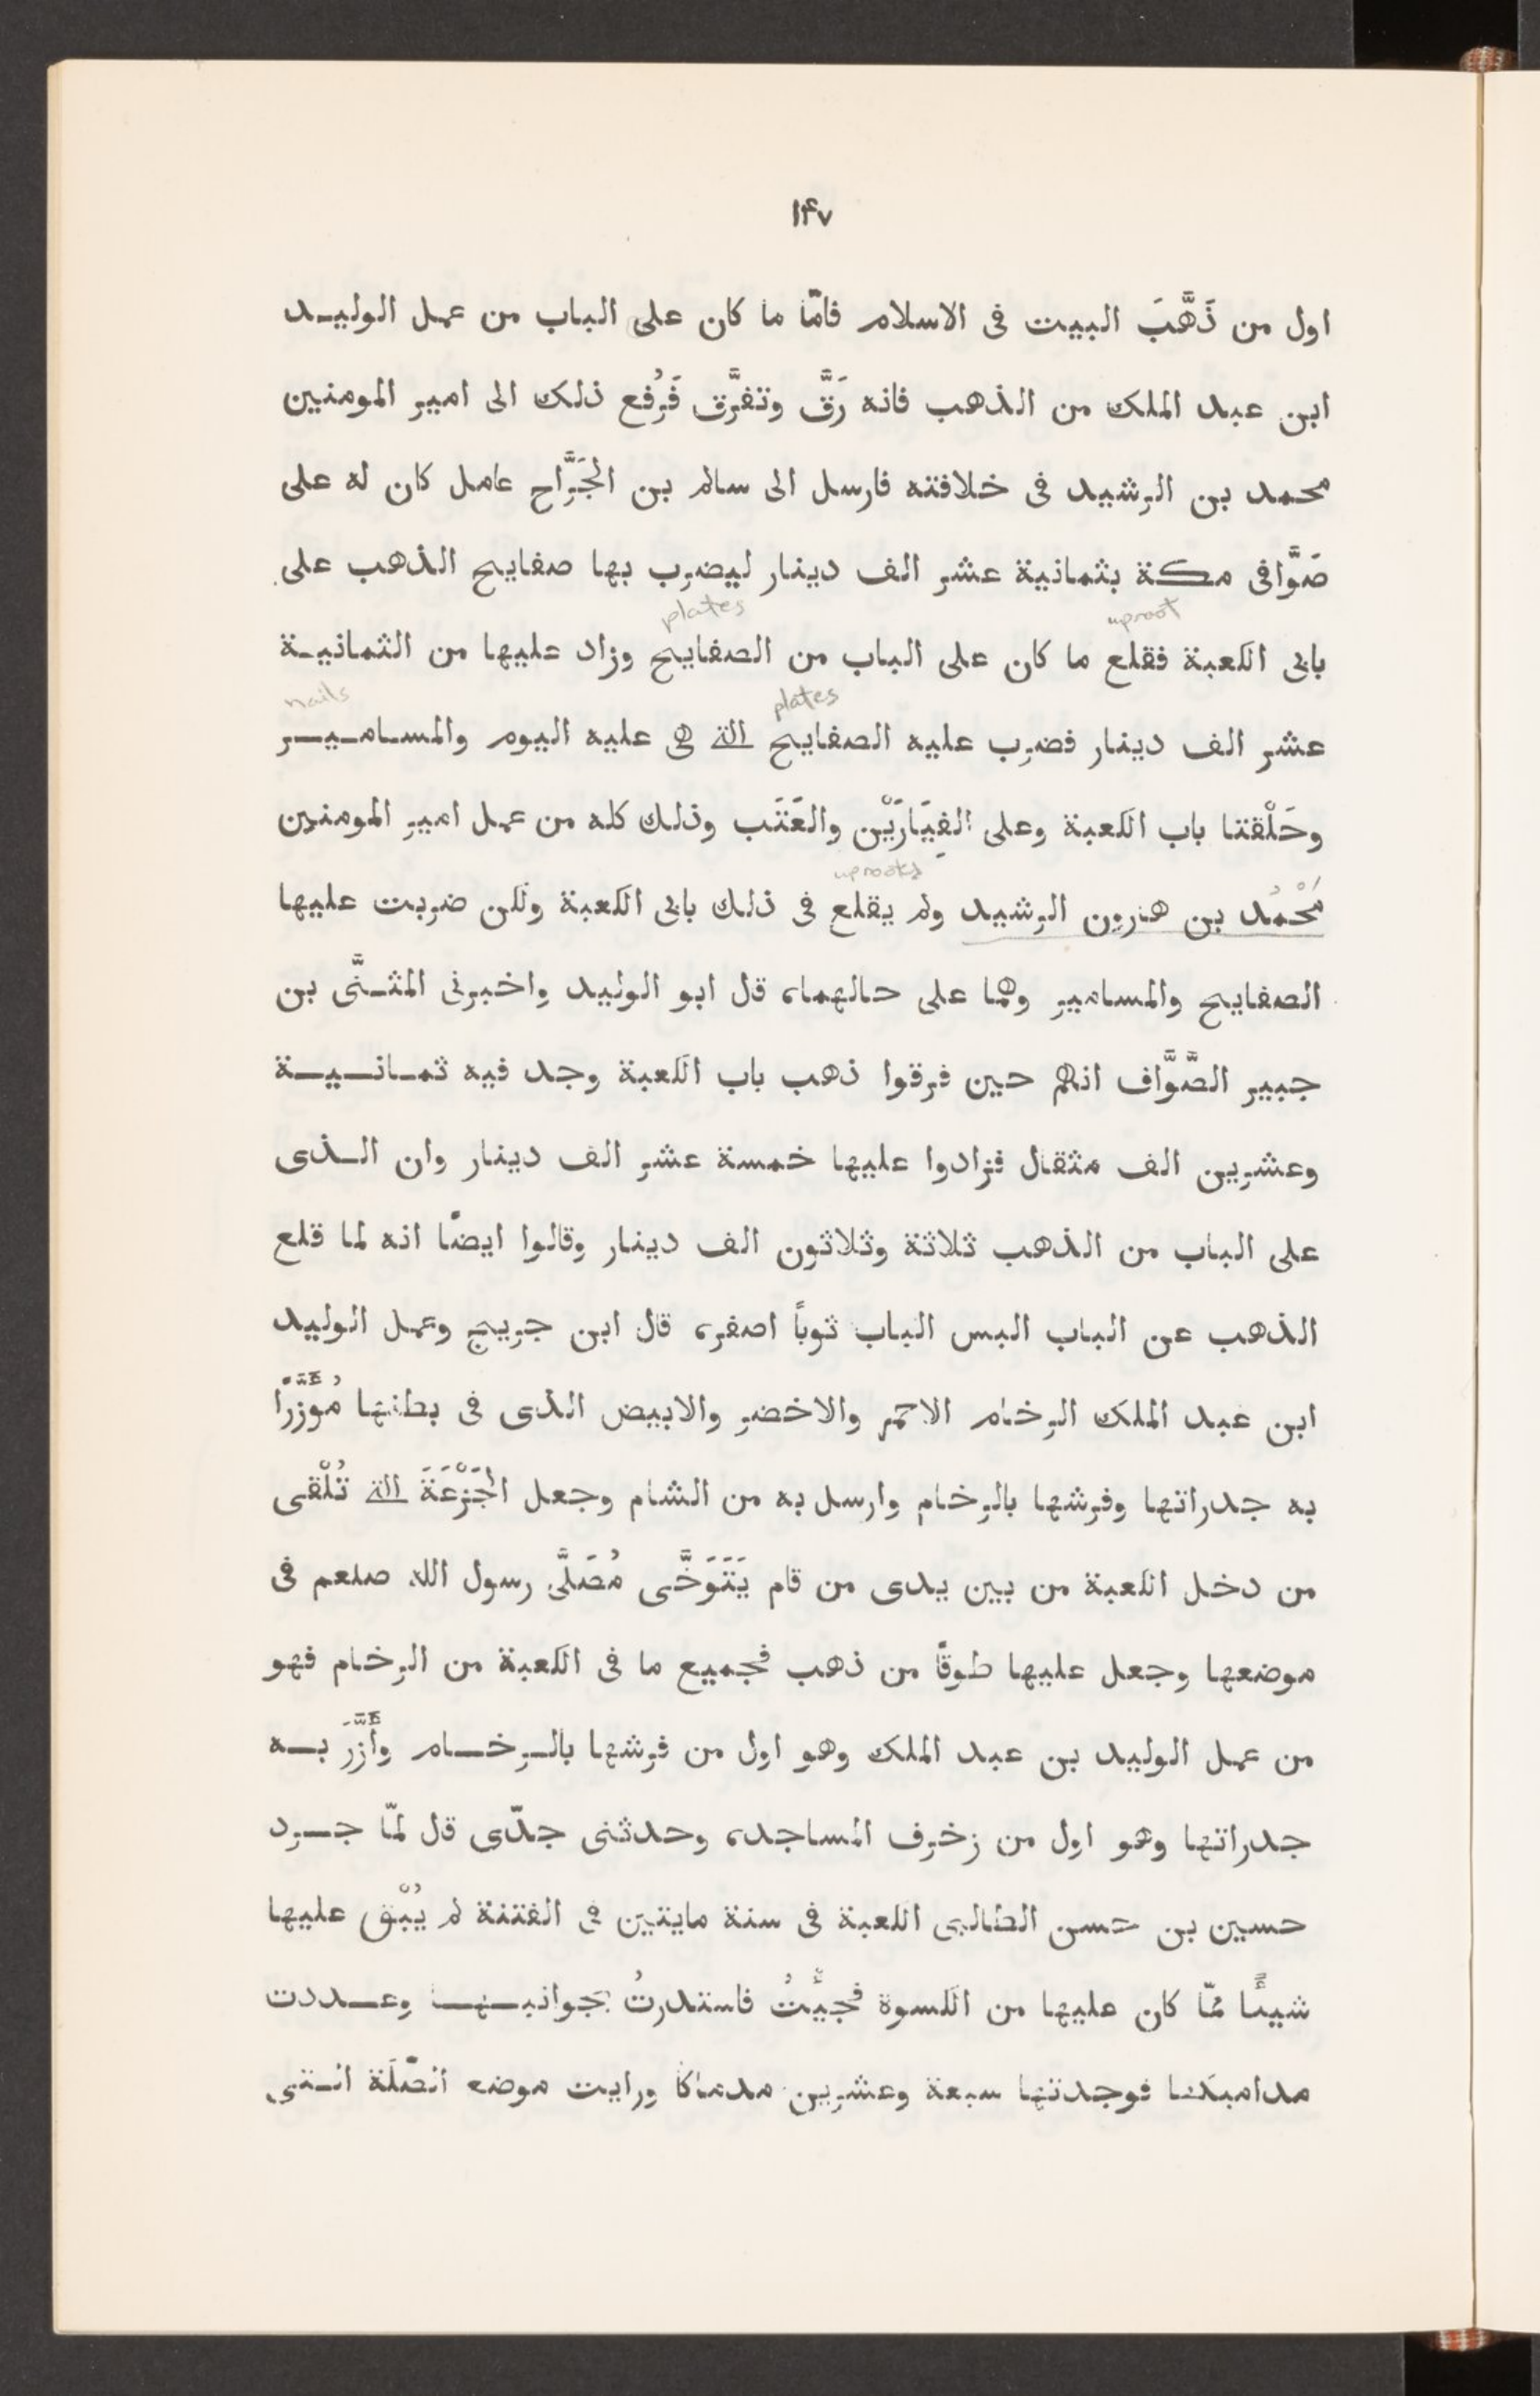 ۱۴۷
اول من ذَهَّبَ البيت فى الاسلام فامّا ما كان على الباب من عمل الوليد
ابن عبد الملك من الذهب فانه رَقَّ وتفرَّق فَرُفع ذلك الى امير المومنين
محمد بن الرشيد فى خلافته فارسل الى سالم بن الجَرَّاح عامل كان له على
صَوَّافى مكة بثمانية عشر الف دينار ليضرب بها صفايح الذهب على
plates uproot
بابى الكعبة فقلع ما كان على الباب من الصفايح وزاد عليها من الثمانية
nails plates
عشر الف دينار فضرب عليه الصفايح التى هى عليه اليوم والمسامير
وحَلْقتا باب الكعبة وعلى الفِيَارَيْن والعَتَب وذلك كله من عمل امير المومنين
uproots
مُحْمُد بن هرون الرشيد ولم يقلع فى ذلك بابى الكعبة ولكن ضربت عليها
الصفايح والمسامير وهما على حالهما، قل ابو الوليد واخبرنى المثنَّى بن
جبير الصَّوَّاف انهم حين فرقوا ذهب باب الكعبة وجد فيه ثمانية
وعشرين الف مثقال فزادوا عليها خمسة عشر الف دينار وان الذى
على الباب من الذهب ثلاثة وثلاثون الف دينار وقالوا ايضًا انه لما قلع
الذهب عن الباب البس الباب ثوبًا اصفر، قال ابن جريج وعمل الوليد
ابن عبد الملك الرخام الاحمر والاخضر والابيض الذى فى بطنها مُؤَزَّرًا
به جدراتها وفرشها بالرخام وارسل به من الشام وجعل الجَزْعَةَ التى تُلْقى
من دخل الكعبة من بين يدى من قام يَتَوَخَّى مُصَلَّى رسول الله صلعم فى
موضعها وجعل عليها طوقًا من ذهب فجميع ما فى الكعبة من الرخام فهو
من عمل الوليد بن عبد الملك وهو اول من فرشها بالرخام وأَزَّرَ به
جدراتها وهو اول من زخرف المساجد، وحدثنى جدّى قل لمّا جرد
حسين بن حسن الطالبى الكعبة فى سنة مايتين فى الفتنة لم يُبْق عليها
شيئًا ممّا كان عليها من الكسوة فجيْتُ فاستدرتُ بجوانبها وعددت
مداميكها فوجدتها سبعة وعشرين مدماكا ورايت موضع الصّلَة التى